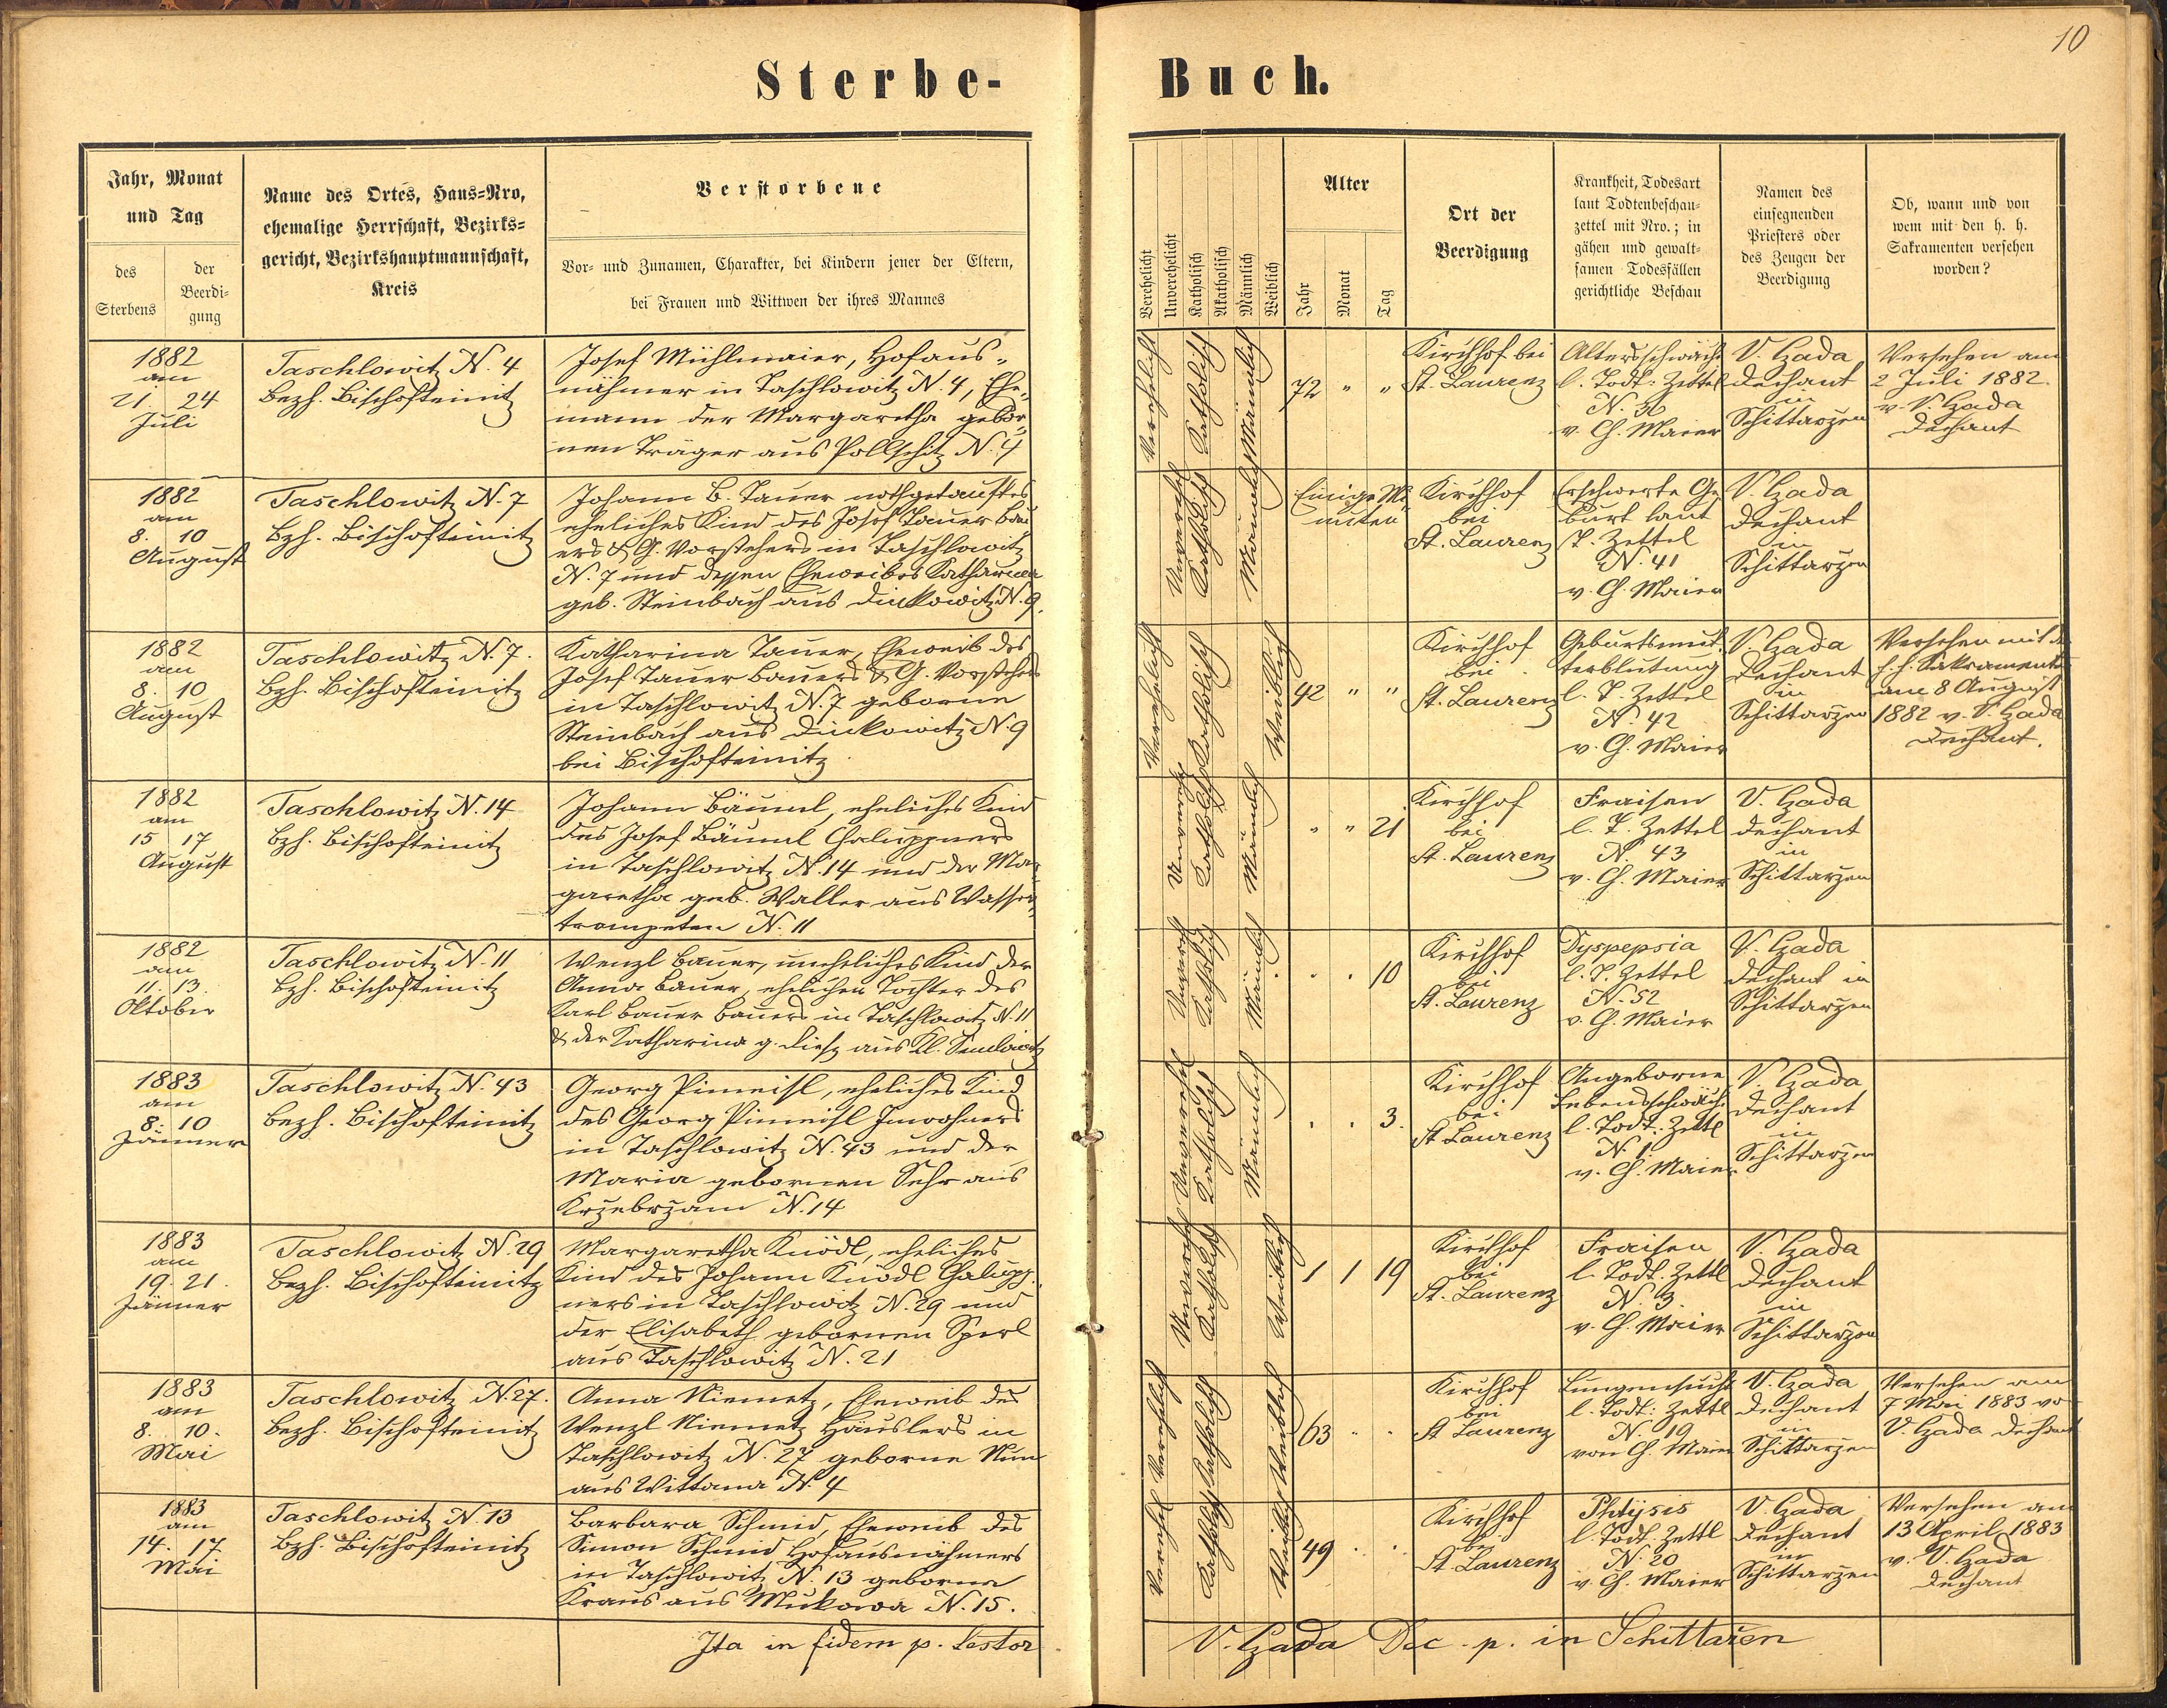 10
Sterbe-
Buch.
Jahr, Monat
und Tag
des
Sterbens
der
Beerdi-
gung
Name des Ortes, Haus=Nro,
ehemalige Herrschaft, Bezirks=
gericht, Bezirkshauptmannschaft,
Kreis
Verstorbene
Vor- und Zunamen, Charakter, bei Kindern jener der Eltern,
bei Frauen und Wittwen der ihres Mannes
Verehelicht
Unverehelicht
Katholisch
Akatholisch
Männlich
Weiblich
Alter
Jahr
Monat
Tag
Ort der
Beerdigung
Krankheit, Todesart
laut Todtenbeschau-
zettel mit Nro.; in
gähen und gewalt-
samen Todesfällen
gerichtliche Beschau
Namen des
einsegnenden
Priesters oder
des Zeugen der
Beerdigung
Ob, wann und von
wem mit den h. h.
Sakramenten versehen
worden?
1882
am
21 24
Juli
Taschlowitz N. 4
Bezh. Bischofteinitz
Josef Mühlmaier, Hofaus-
nähmer in Taschlowitz N. 4, Ehe-
mann der Margaretha gebor-
nen Träger aus Pollschitz N. 4
Verehelicht
Katholisch
Männlich
72 " "
Kirchhof bei
St. Laurenz
Altersschwäche
l. Todt: Zettel
v. Ch. Maier
V. Hada
Dechant
in
Schittarzen
Versehen am
2 Juli 1882
v. V. Hada
Dechant
1882
am
8. 10
August
Taschlowitz N. 7
Bzh. Bischofteinitz
Johann B. Tauer nothgetauftes
eheliches Kind des Josef Tauer Bau
ers & G. Vorstehers in Taschlowitz
N. 7 und dessen Eheweibes Katharina
geb. Steinbach aus Dinkowitz N. 9.
Unvereh.
Katholisch
Männlich
Einige Mi
nuten
Kirchhof
bei
St. Laurenz
Erschwerte Ge
burt laut
T. Zettel
N. 41
v. Ch. Maier
V. Hada
Dechant
in
Schittarzen
1882
am
8. 10
August
Taschlowitz N. 7.
Bzh. Bischofteinitz
Katharina Tauer, Eheweib des
Josef Tauer Bauers & G. Vorstehers
in Taschlowitz N. 7 geborne
Steinbach aus Dinkowitz N. 9
bei Bischofteinitz
Verehelicht
Katholisch
Weiblich
42 " "
Kirchhof
bei
St. Laurenz
Geburtsmut-
terblutung
l. T. Zettel
N. 42
v. Ch. Maier
V. Hada
Dechant
in
Schittarzen
Versehen mit d
h. h. Sakramente
am 8 August
1882 v. V. Hada
Dechant.
1882
am
15 17
August
Taschlowitz N. 14
Bzh. Bischofteinitz
Johann Bäuml, eheliches Kind
des Josef Bäuml Chaluppners
in Taschlowitz N. 14 und der Mar
garetha geb. Waller aus Wasser
trompeten N. 11
Unvereh.
Katholisch
Männlich
" " 21
Kirchhof
bei
St. Laurenz
Fraisen
l. T. Zettel
N. 43
v. Ch. Maier
V. Hada
Dechant
in
Schittarzen
1882
am
11. 13.
Oktober
Taschlowitz N. 11
Bzh. Bischofteinitz
Wenzl Bauer, uneheliches Kind der
Anna Bauer, ehelichen Tochter des
Karl Bauer Bauers in Taschlowitz N. 11
& der Katharina g. Liesz aus Kl. Semlowitz
Unvereh
Katholisch
Männlich
. . 10
Kirchhof
bei
St. Laurenz
Dyspepsia
l. T. Zettel
N. 52
v. Ch. Maier
V. Hada
Dechant in
Schittarzen
1883
am
8. 10
Jänner
Taschlowitz N. 43
Bezh. Bischofteinitz
Georg Pimeisl, eheliches Kind
des Georg Pimeisl Inwohners
in Taschlowitz N. 43 und der
Maria gebornen Sehr aus
Krzebrzam N. 14
Unverehel
Katholisch
Männlich
. . 3.
Kirchhof
bei
St Laurenz
Angeborne
Lebensschwäch.
l. Todt: Zettl
N. 1
v. Ch. Maier
V. Hada
Dechant
in
Schittarzen
1883
am
19. 21.
Jänner
Taschlowitz N. 29
Bezh. Bischofteinitz
Margaretha Knödl, eheliches
Kind des Johann Knödl Chalupp
ners in Taschlowitz N. 29 und
der Elisabeth gebornen Sperl
aus Taschlowitz N. 21
Unvereh
Katholisch
Weiblich
1 1 19
Kirchhof
bei
St. Laurenz
Fraisen
l. Todt. Zettl
N. 3.
v. Ch. Maier
V. Hada
Dechant
in
Schittarzen
1883
am
8. 10.
Mai
Taschlowitz N. 27.
Bezh. Bischofteinitz
Anna Niemetz, Eheweib des
Wenzl Niemetz Häuslers in
Taschlowitz N. 27 geborne
aus Wittana N. 4
Verehelich
Katholisch
Weiblich
63 . .
Kirchhof
bei
St Laurenz
Lungensucht
l. Todt: Zettl
N. 19
von Ch. Maier
V. Hada
Dechant
in
Schittarzen
Versehen am
7 Mai 1883 vo
V. Hada Dechant
1883
am
14. 17.
Mai
Taschlowitz N. 13
Bzh. Bischofteinitz
Barbara Schmid, Eheweib des
Simon Schmid Hofausnähmers
in Taschlowitz N. 13 geborne
Kraus aus Mukowa N. 15.
Verehel
Katholisch
Weiblich
49 . .
Kirchhof
bei
St Laurenz
Phtysis
l. Todt. Zettl
N. 20
v. Ch. Maier
V. Hada
Dechant
in
Schittarzen
Versehen am
13 April 1883
v. V. Hada
Dechant
Ita in fidem p. Testor
V. Hada Dec. p. in Schittařen